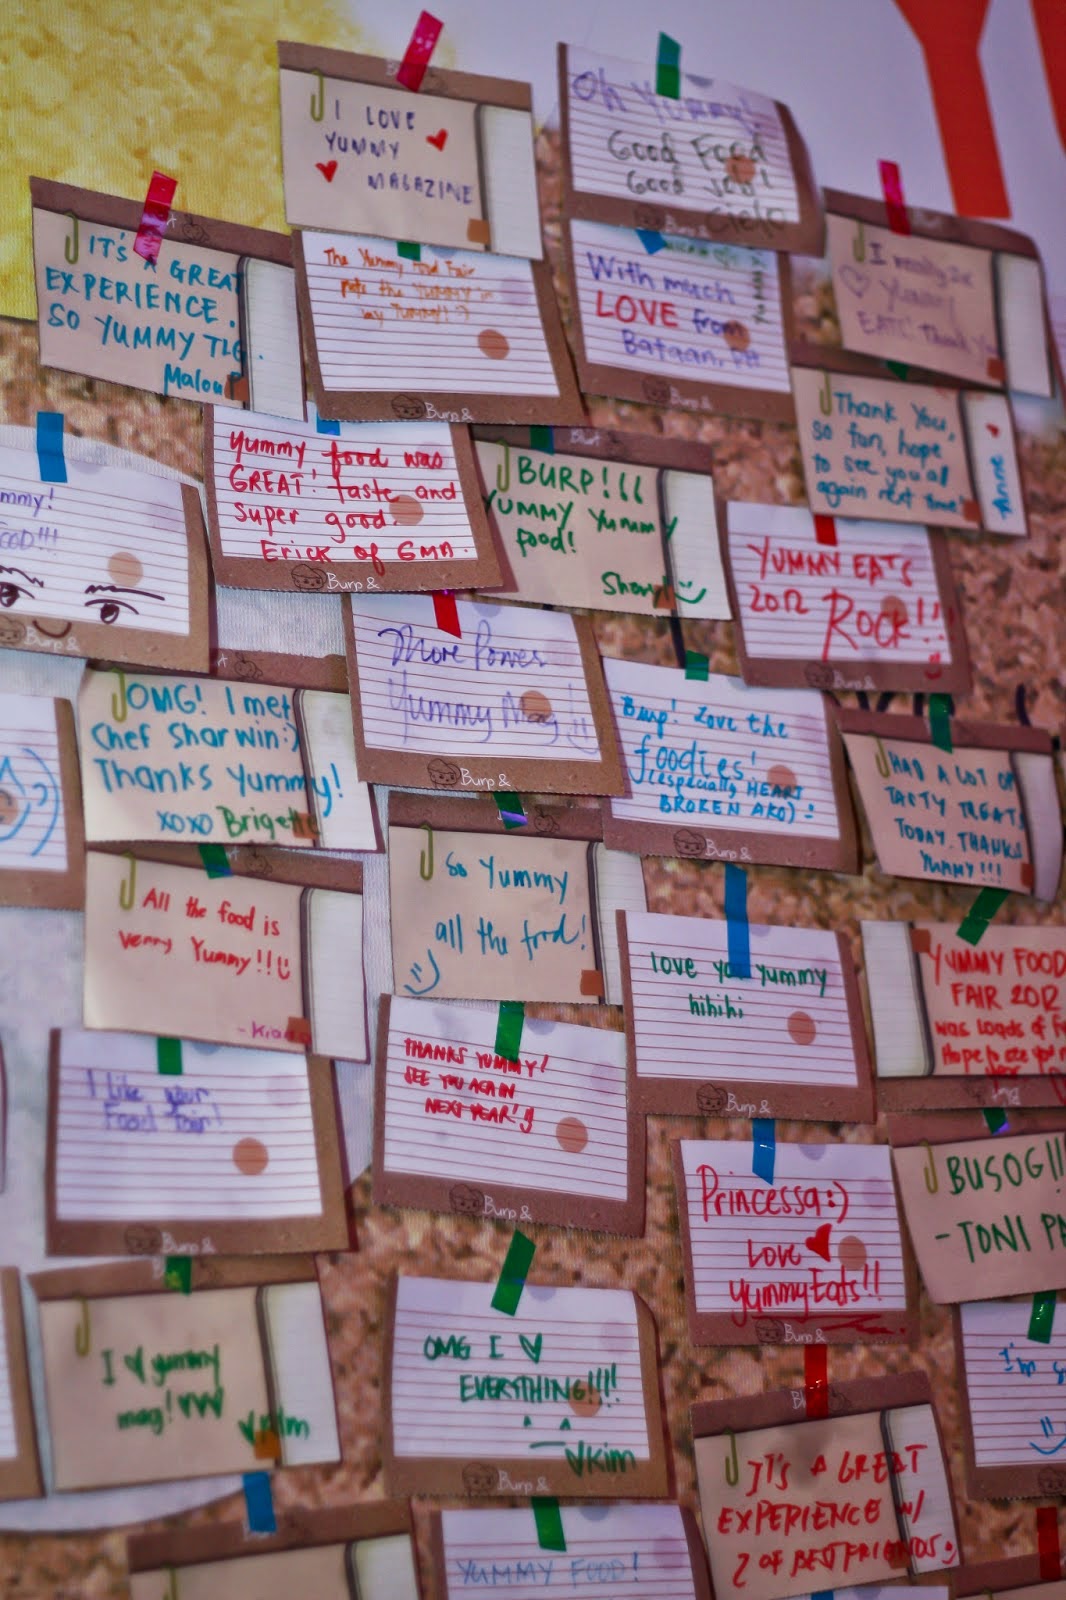 I LOVE
YUMMY
MAGAZINE
Oh Yummy!
Good Food
Good Job!
IT'S A GREAT
EXPERIENCE.
SO YUMMY TLG.
Malou
The Yummy Food Fair
puts the YUMMY in
my Tummy!! :)
With much
LOVE from
Bataan, PH
I
Yummy
EATS! Thank
Thank You,
so fun, hope
to see you all
again next time!
Anne
mmy!
FOOD!!!
Yummy food was
GREAT! taste and
super good.
Erick of GMA.
Burp &
BURP!
YUMMY Yummy
food!
Sheryl
YUMMY EATS
2012
ROCK!!
Burp &
OMG! I met
Chef Sharwin:)
Thanks Yummy!
XOXO Brigette
More Power
Yummy Mag!
Burp &
Burp! Love the
foodies!
(especially HEART
BROKEN AKO) :
Burp &
HAD A LOT OF
TASTY TREATS
TODAY. THANKS
YUMMY!!!
All the food is
verry Yummy!!!
So Yummy
all the food!
love you yummy
hihihi
Burp &
YUMMY FOOD
FAIR 2012
was loads of
Hope to see you
I like your
Food Fair!
Burp &
THANKS YUMMY!
SEE YOU AGAIN
NEXT YEAR!
Burp &
Princessa:)
Love
YummyEats!!
Burp &
BUSOG!!
- TONI
I yummy
mag!
OMG I
EVERYTHING!!!!
Kim
Burp &
I'm
IT'S A GREAT
EXPERIENCE W/
2 OF BESTFRIENDS:)
YUMMY FOOD!